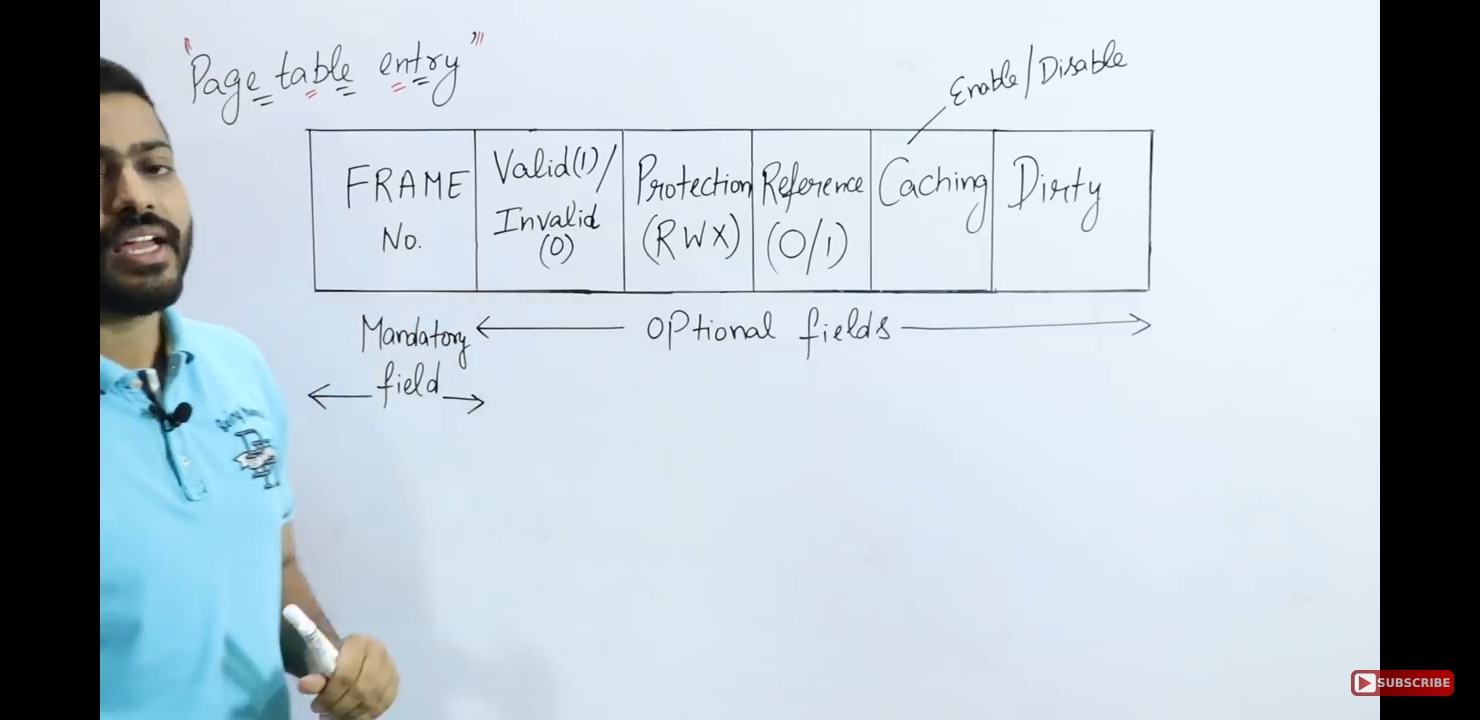 "Page table entry"
Enable/Disable
FRAME No.
Valid(1)/ Invalid (0)
Protection (RWX)
Reference (0/1)
Caching
Dirty
Mandatory field
Optional fields
SUBSCRIBE